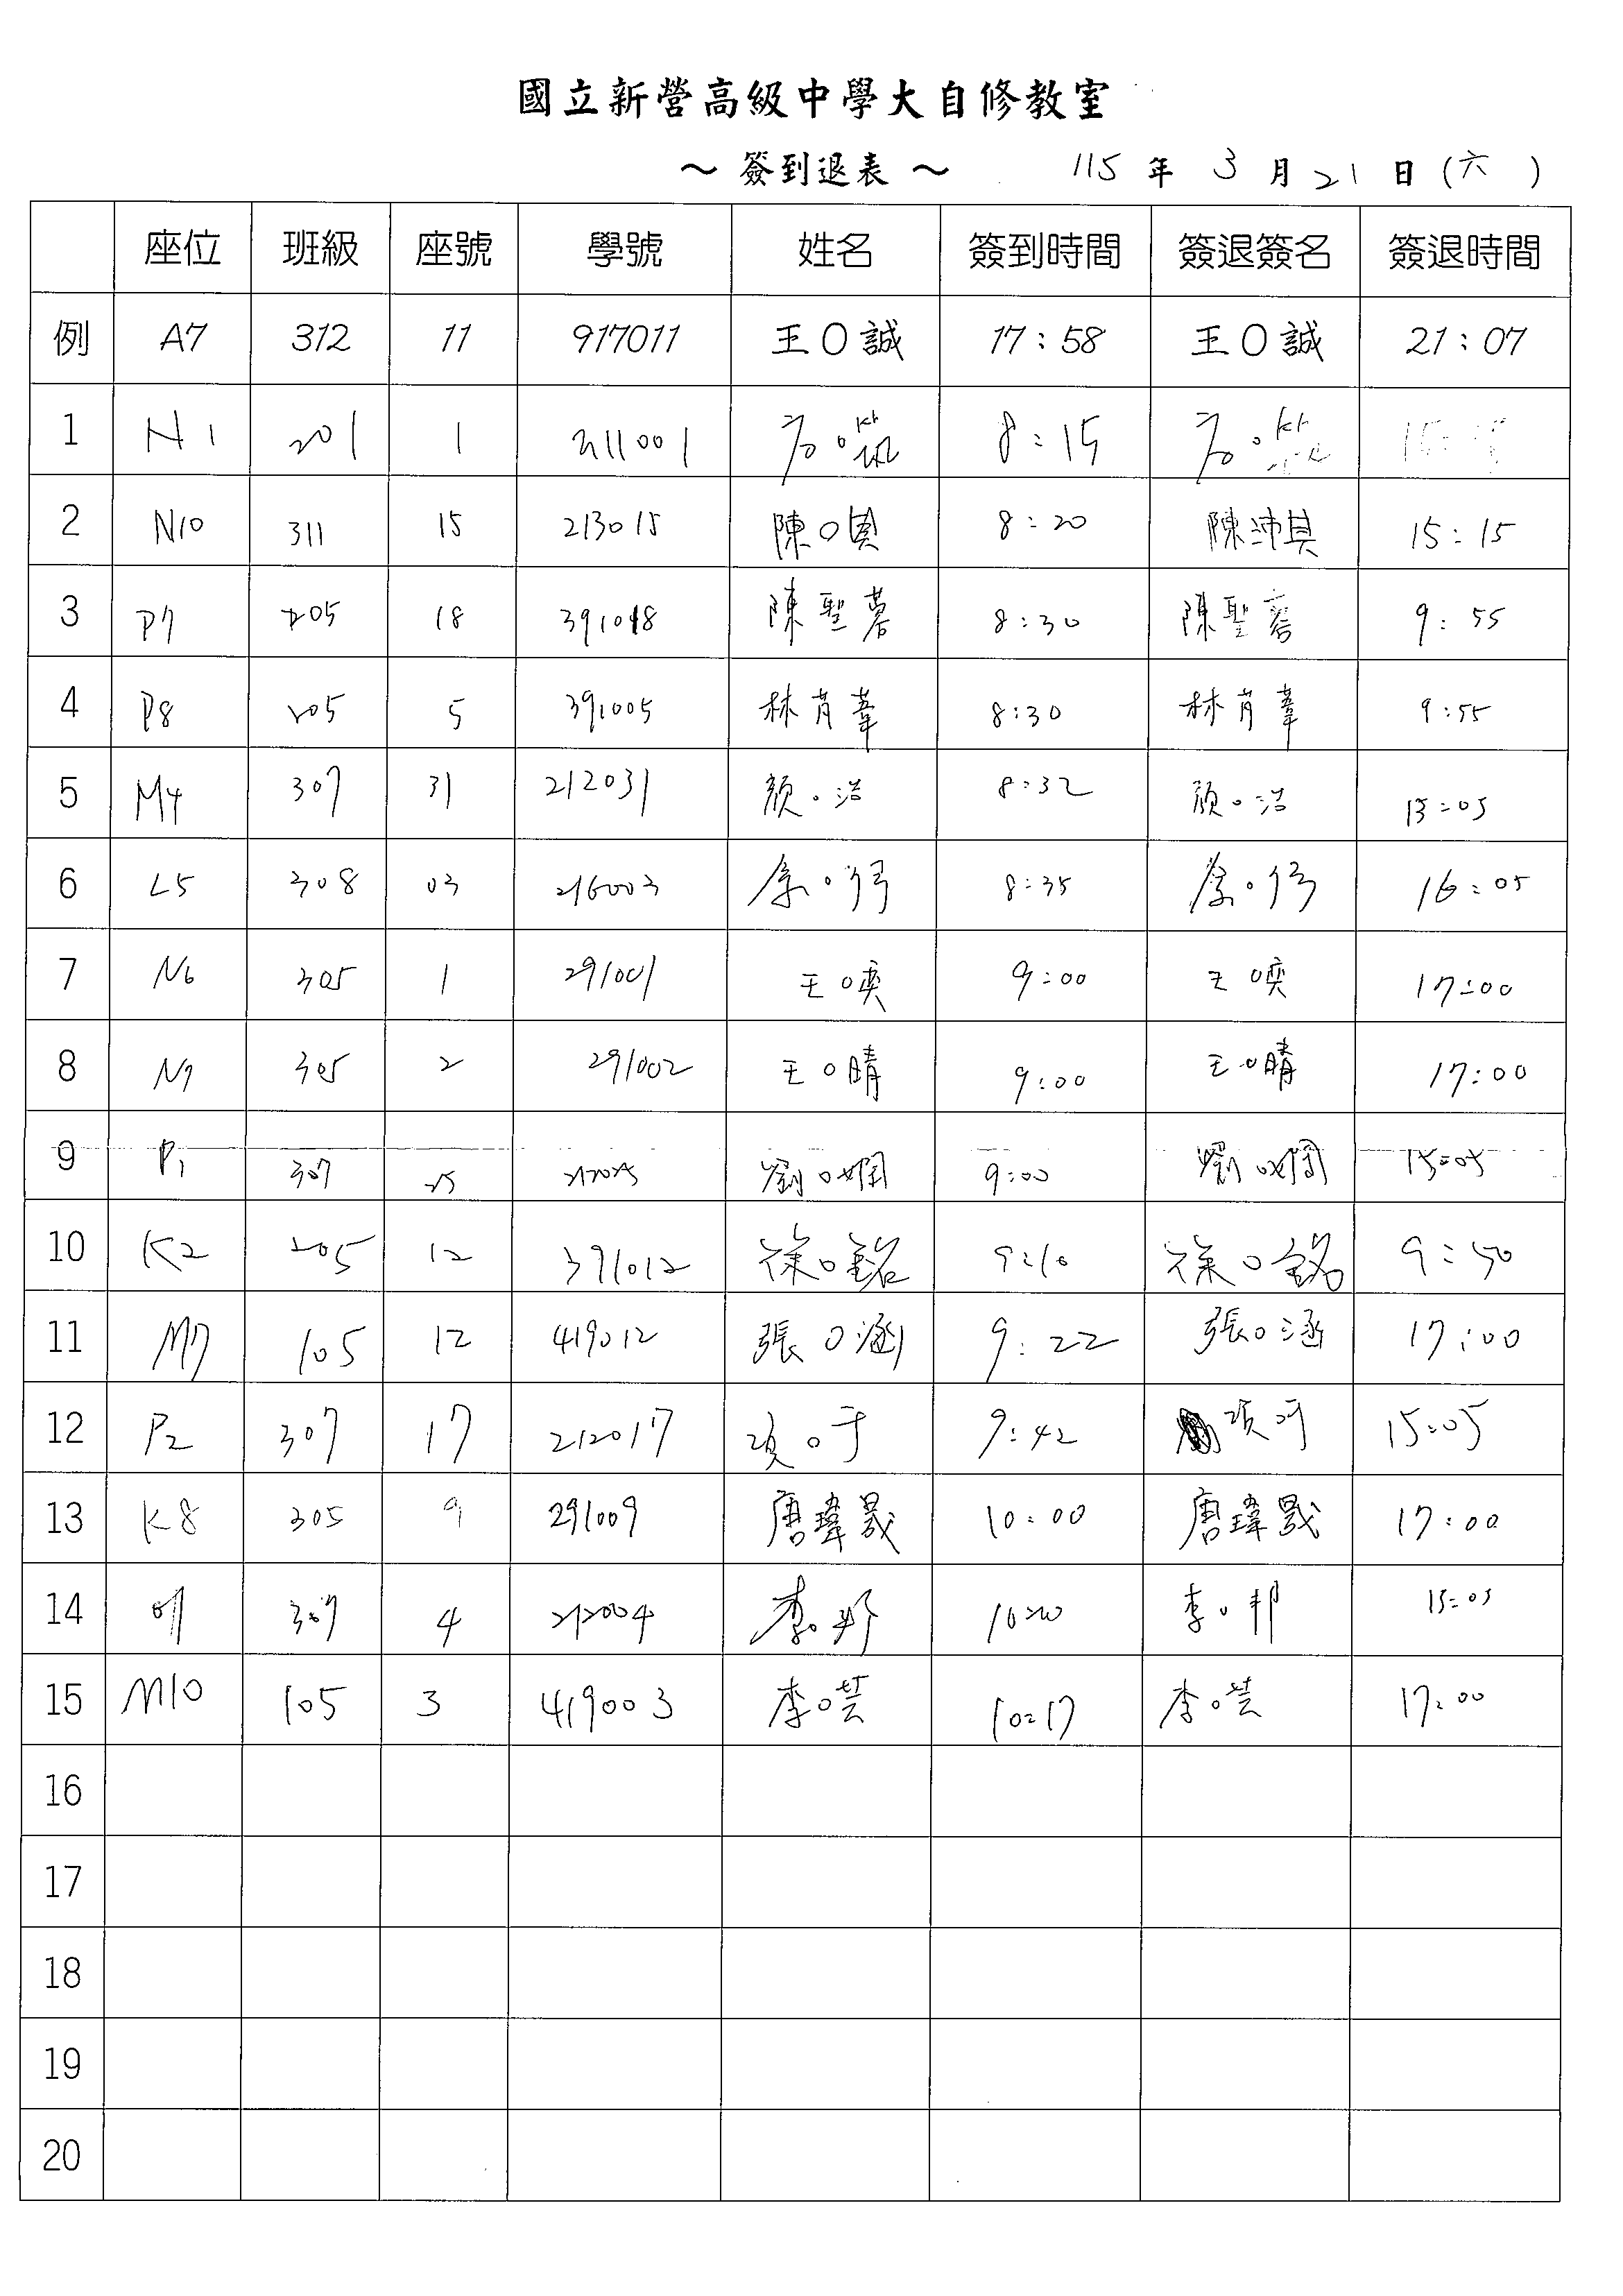 國立新營高級中學大自修教室
～ 簽到退表 ～ 115 年 3 月 21 日 (六)
座位 班級 座號 學號 姓名 簽到時間 簽退簽名 簽退時間
例 A7 312 11 917011 王O誠 17:58 王O誠 21:07
1 N1 201 1 211001 8:15
2 N10 311 15 213015 陳O 8:20 陳沛其 15:15
3 P7 205 18 391018 陳聖蓉 8:30 陳聖蓉 9:55
4 P8 205 5 391005 林育葦 8:30 林育葦 9:55
5 M4 307 31 212031 顏O浩 8:32 顏O浩 15:05
6 L5 308 03 216003 8:35 16:05
7 N6 305 1 291001 王O奕 9:00 王O奕 17:00
8 N7 305 2 291002 王O晴 9:00 王O晴 17:00
9 P1 307 25 212025 劉O嫻 9:00 劉O嫻 15:05
10 K2 205 12 391012 徐O銘 9:10 徐O銘 9:50
11 M7 105 12 419012 張O涵 9:22 張O涵 17:00
12 P2 307 17 212017 項O于 9:42 15:05
13 K8 305 9 291009 唐瑋晟 10:00 唐瑋晟 17:00
14 307 4 212004 李O邦 李O邦 15:05
15 M10 105 3 419003 李O芸 10:17 李O芸 17:00
16
17
18
19
20